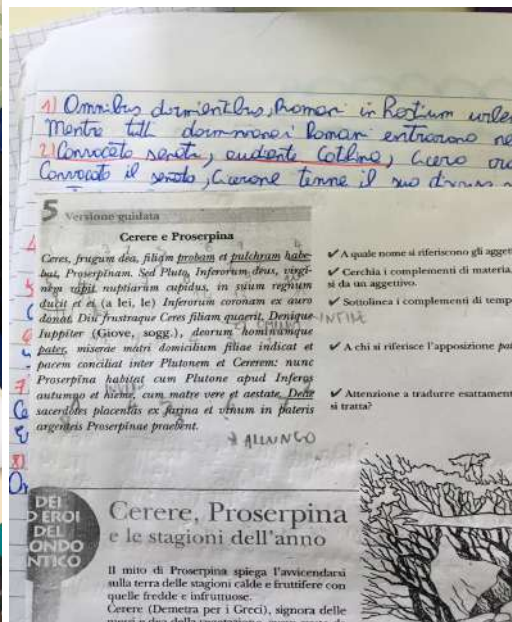 1) Omnibus dormientibus, Romani in hostium
Mentre tutti dormivano i Romani entrarono
2) Convocato senatu, audiente Catilina, Cicero
Convocato il senato, Cicerone tenne il suo
5 Versione guidata
Cerere e Proserpina
Ceres, frugum dea, filiam probam et pulchram habe-
bat, Proserpinam. Sed Pluto, Inferorum deus, virgi-
nem rapit nuptiarum cupidus, in suum regnum
ducit et ei (a lei, le) Inferorum coronam ex auro
donat. Diu frustraque Ceres filiam quaerit. Denique
INFINE
Iuppiter (Giove, sogg.), deorum hominumque
pater, miserae matri domicilium filiae indicat et
pacem conciliat inter Plutonem et Cererem: nunc
Proserpina habitat cum Plutone apud Inferos
autumno et hieme, cum matre vere et aestate. Deae
sacerdotes placentas ex farina et vinum in pateris
argenteis Proserpinae praebent.
ALLUNGO
✔ A quale nome si riferiscono gli
✔ Cerchia i complementi di materia
si da un aggettivo.
✔ Sottolinea i complementi di
✔ A chi si riferisce l'apposizione
✔ Attenzione a tradurre
si tratta?
DEI
EROI
DEL
ONDO
NTICO
Cerere, Proserpina
e le stagioni dell'anno
Il mito di Proserpina spiega l'avvicendarsi
sulla terra delle stagioni calde e fruttifere con
quelle fredde e infruttuose.
Cerere (Demetra per i Greci), signora delle